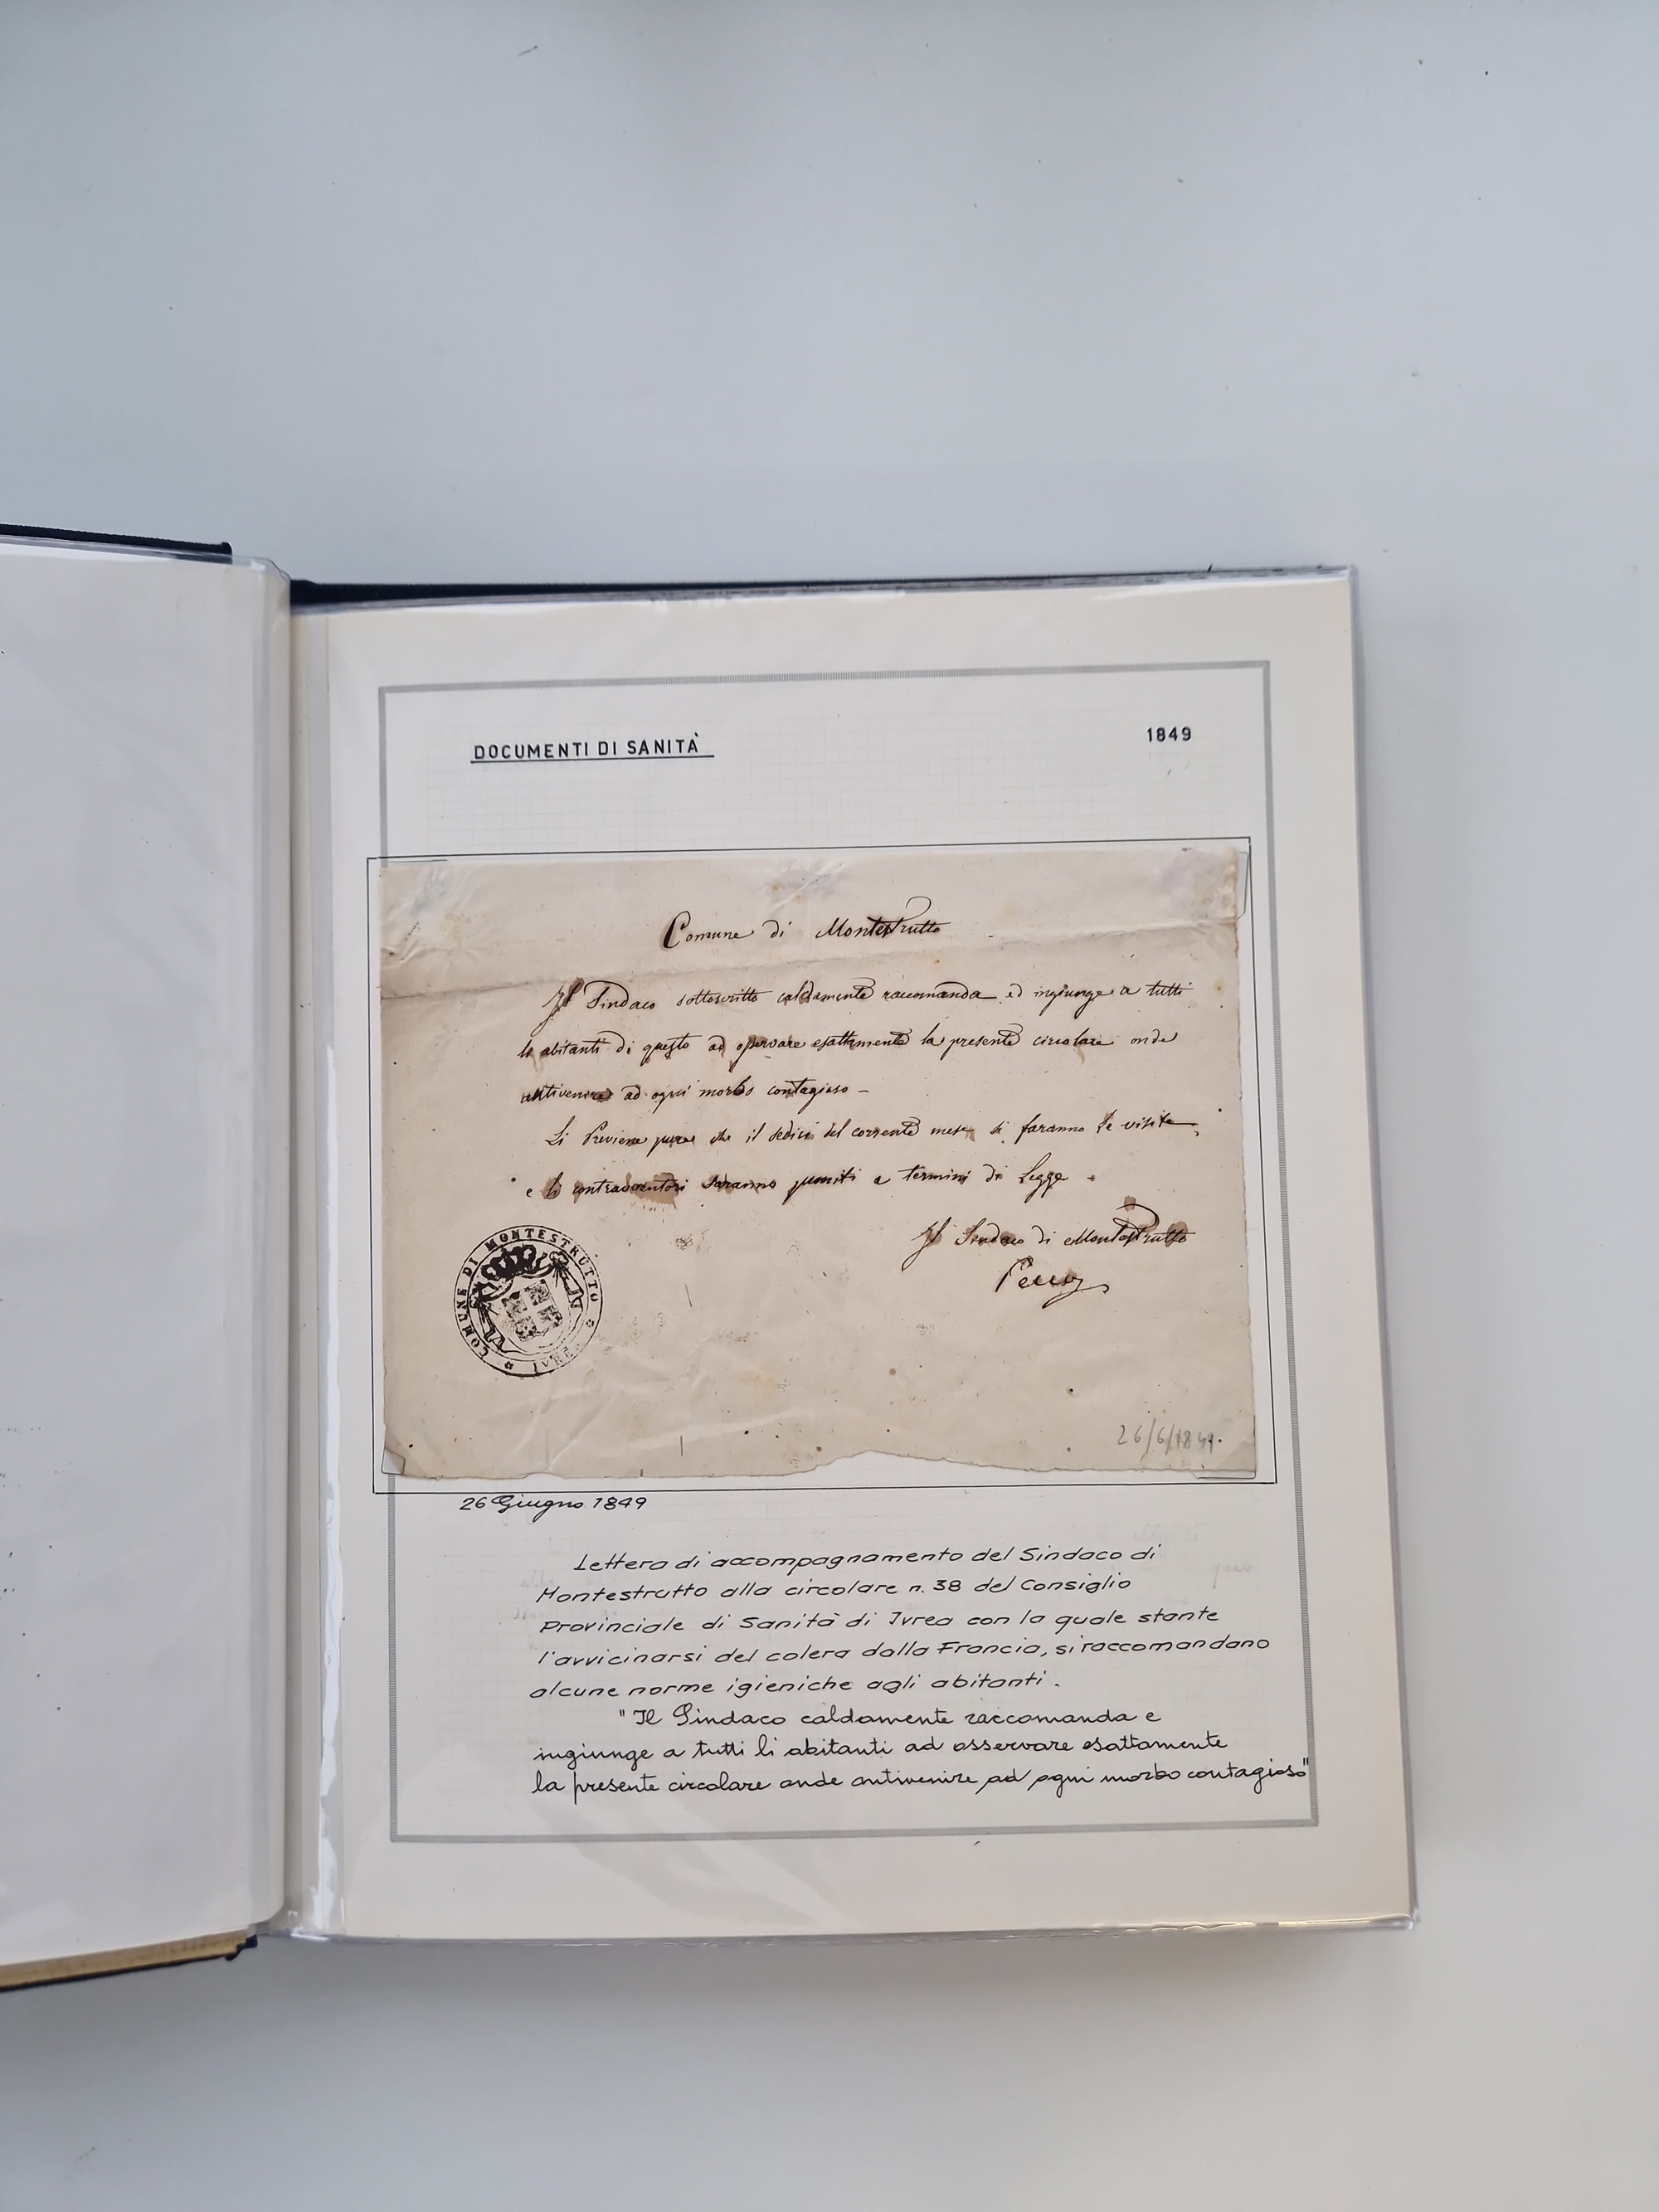 DOCUMENTI DI SANITÀ
1849
Comune di Montestrutto
Il Sindaco sottoscritto caldamente raccomanda ed ingiunge a tutti
li abitanti di questo ad osservare esattamente la presente circolare onde
antivenire ad ogni morbo contagioso -
Si Previene pure che il sedici del corrente mese si faranno le visite
e li contravventori saranno puniti a termini di Legge .
Il Sindaco di Montestrutto
COMUNE DI MONTESTRUTTO
26/6/1849.
26 Giugno 1849
Lettera di accompagnamento del Sindaco di
Montestrutto alla circolare n. 38 del Consiglio
Provinciale di Sanità di Ivrea con la quale stante
l'avvicinarsi del colera dalla Francia, si raccomandano
alcune norme igieniche agli abitanti.
"Il Sindaco caldamente raccomanda e
ingiunge a tutti li abitanti ad osservare esattamente
la presente circolare onde antivenire ad ogni morbo contagioso"